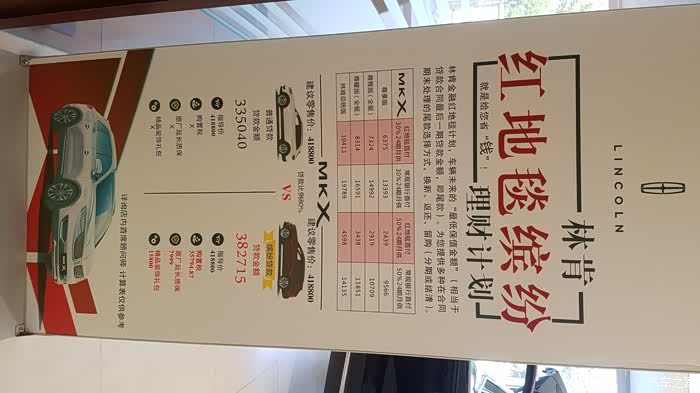 LINCOLN
林肯
红地毯缤纷
理财计划
就是给您省“钱”!
林肯金融红地毯计划,车辆未来的“最低保值金额”(相当于
贷款合同最后一期贷款金额,即尾款)。为您提供多种在合同
期末处理的尾款选择方式,换新、返还、留购(分期或结清)。
MKX 红地毯首付30%24期月供 常规银行首付30%24期月供 红地毯首付50%24期月供 常规银行首付50%24期月供
尊享版 6375 13393 2439 9566
尊雅版(全能) 7324 14992 2919 10709
尊耀版(全能) 8314 16591 3438 11851
林肯总统版 10413 19789 4598 14135
MKX
建议零售价:418800
建议零售价:418800
VS
普通贷款
贷款金额
335040
贷款比例80%
缤纷贷款
贷款金额
382715
指导价
418800
购置税
X
原厂延长质保
X
精品装饰礼包
X
指导价
418800
购置税
35794.87
原厂延长质保
7999
精品装饰礼包
15800
详询店内首席顾问师 计算表仅供参考
MKX
汽车之家